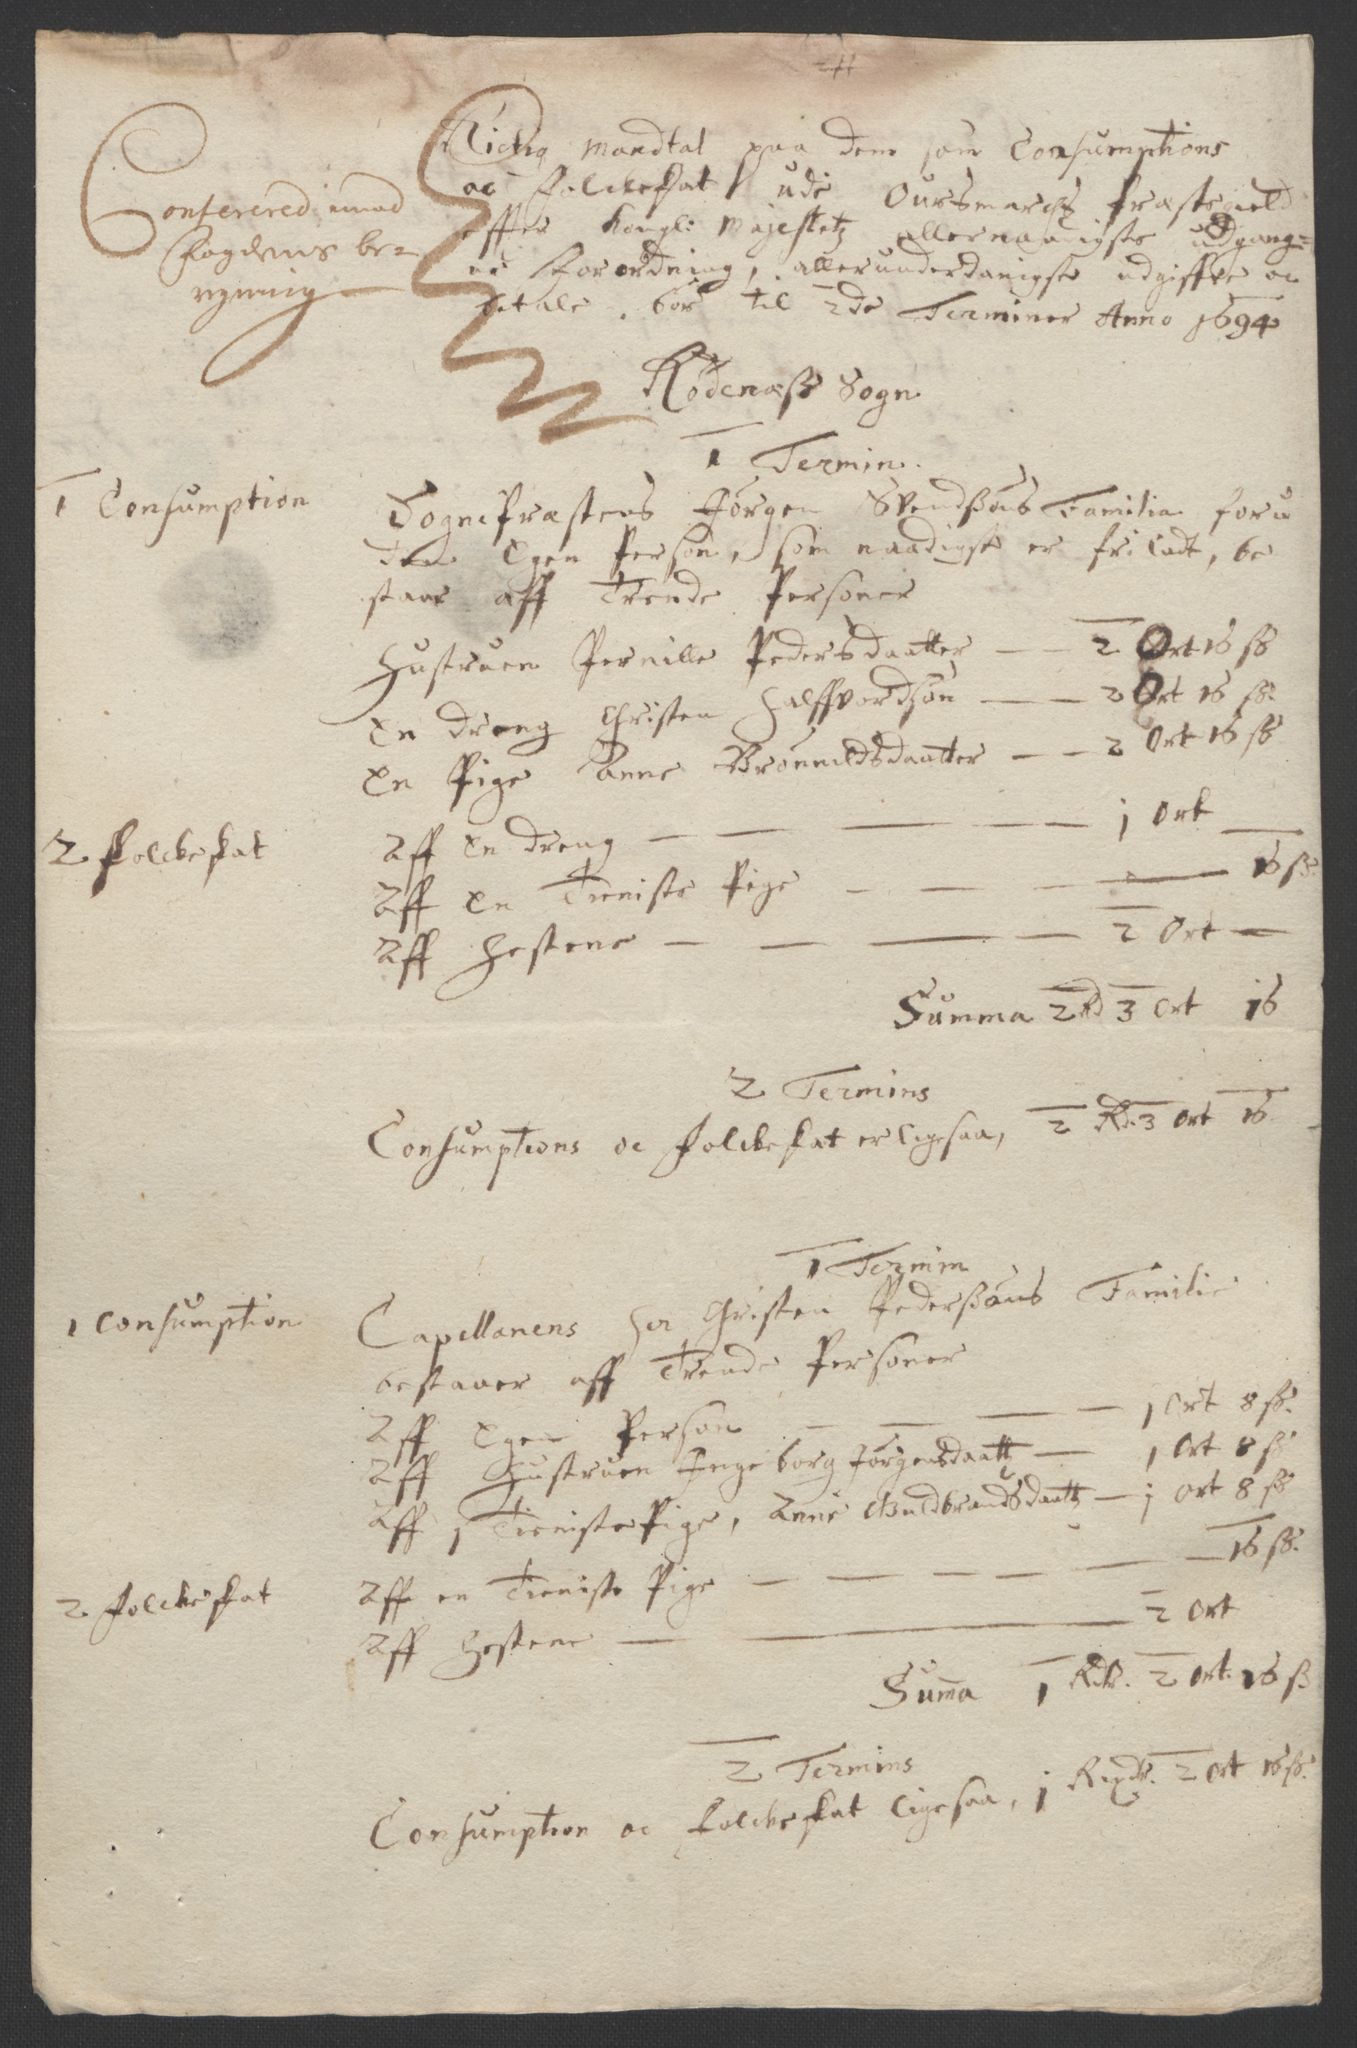 Rictig Mandtal paa dem som Consumptions
oc Folckeskat udi Oursmarchs Præstegield
effter Kongl: Majestetz allernaadigste udgang-
ne Forordning, allerunderdanigst udgiffve oc
betale bør til 2de Terminer Anno 1694
Conferered imod
Fogdens be-
regning
Rødenæss Sogn
1 Termin.
1 Consumption
Sognepræstens Jørgen Svendsøns Familia foru
den Egen Person, som naadigst er friladt, be
staar aff Trende Personer
Hustruen Pernille Pedersdaatter — 2 Ort 16 ss
En dreng Christen Halffvordsøn — 2 Ort 16 ss.
En Pige Anne Brønnildsdaatter — 2 Ort 16 ss
2 Folckeskat
Aff En dreng — 1 Ort
Aff En Tieniste Pige — 16 ss.
Aff Hestene — 2 Ort —
Summa 2 Rd 3 Ort 16
2 Termins
Consumptions oc Folckeskat er ligesaa, 2 Rd. 3 Ort 16
1 Termin
1 Consumption
Capellanens Her Christen Pedersøns Familie
bestaaer aff Trende Personer
Aff Egen Person — 1 Ort 8 ss.
Aff Hustruen Ingeborg Jørgensdaatt — 1 Ort 8 ss
Aff 1 Tieniste Pige, Anne Guldbrandsdaatt — 1 Ort 8 ss
2 Folckeskat
Aff en Tieniste Pige — 16 ss.
Aff Hestene — 2 Ort
Suma 1 Rdr. 2 Ort. 16 ss
2 Termins
Consumption oc Folckeskat ligesaa, 1 Rixdr. 2 Ort 16 ss.